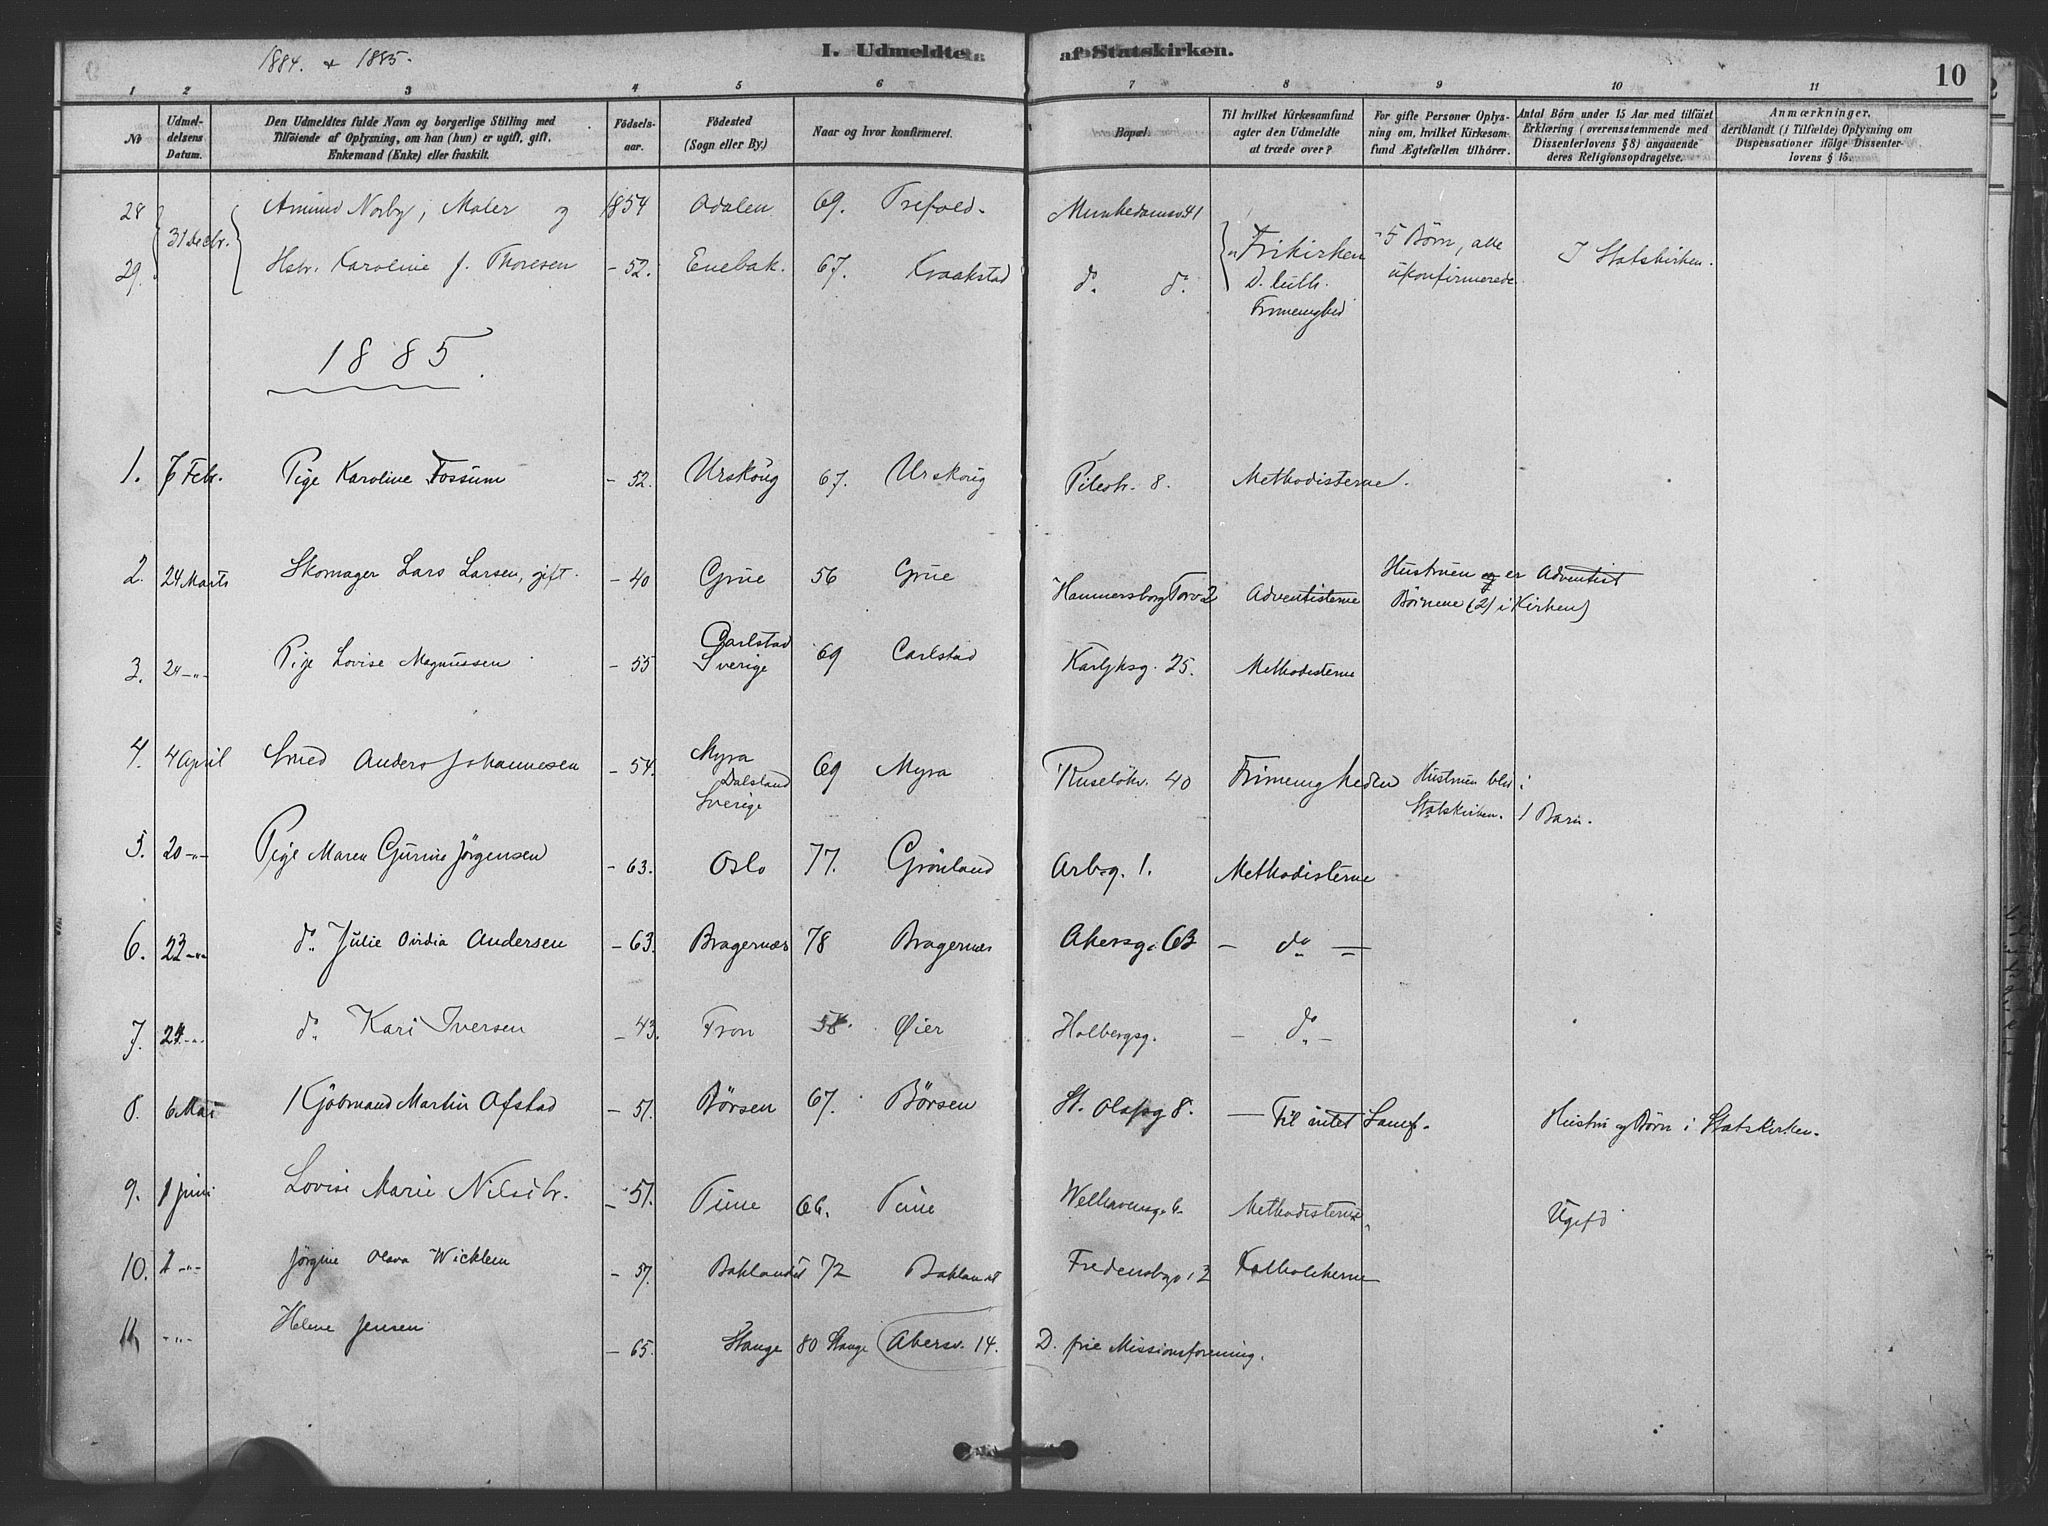 1884. & 1885.
I. Udmeldte af Statskirken.
10
1 2 3 4 5 6 7 8 9 10 11
No
Udmel-
delsens
Datum.
Den Udmeldtes fulde Navn og borgerlige Stilling med
Tilföiende af Oplysning, om han (hun) er ugift, gift,
Enkemand (Enke) eller fraskilt.
Födsels-
aar.
Födested
(Sogn eller By.)
Naar og hvor konfirmeret.
Bopæl.
Til hvilket Kirkesamfund
agter den Udmeldte
at træde over?
For gifte Personer Oplys-
ning om, hvilket Kirkesam-
fund Ægtefællen tilhörer.
Antal Börn under 15 Aar med tilföiet
Erklæring (overensstemmende med
Dissenterlovens § 8) angaaende
deres Religionsopdragelse.
Anmærkninger,
deriblandt (i Tilfælde) Oplysning om
Dispensationer ifölge Dissenter-
lovens § 15.
28 31 Decbr. Amund Norby, Maler og 1854 Odalen 69. Trefold. Munkedamsv. 41 Frikirken 5 Børn, alle I Statskirken.
29. Hstr. Karoline f. Thoresen - 52. Enebak. 67. Kraakstad do. do. D. luth. ukonfirmerede
Frimenighed
1885.
1. 7 Febr. Pige Karoline Fossum - 52. Urskoug 67. Urskoug Pilestr. 8. Methodisterne.
2. 24 Marts Skomager Lars Larsen, gift. - 40 Grue 56 Grue Hammersborg Torv 2 Adventisterne Hustruen og er Adventist
Børnene (2) i Kirken)
3. 24 -"- Pige Lovise Magnussen - 55 Carlstad 69 Carlstad 25. Methodisterne
Sverige
4. 4 April Smed Anders Johannesen - 54. Myra 69 Myra Ruseløkv. 40 Frimenigheden Hustruen blir i
Dalsland Statskirken. 1 Barn.
Sverige
5. 20 -"- Pige Maren Gurine Jørgensen - 63. Oslo 77. Grønland Arbsg. 1. Methodisterne
6. 23 -"- do. Julie Andersen - 63. Bragernæs 78 Bragernæs Akersg. 63 - do. -
7. 24 -"- do. Kari Iversen - 43. Fron 58. Øier Holbergsg. - do. -
8. 6 Mai Kjøbmand Martin Ofstad - 51. Børsen 67. Børsen St. Olafsg 8. - Til intet Samf. Hustru og Børn i Statskirken.
9. 1 Juni Lovise Marie Nilsdtr. - 51. Tune 66. Tune Welhavensg. 6. Methodisterne Ugift
10. 1 -"- Jørgine Olava Wicklem - 57. Baklandet 72 Baklandet Fredensbg. 2 Katholikerne
11. -"- Helene Jensen - 65. Stange 80 Stange Akersv. 14. D. frie Missionsforening.